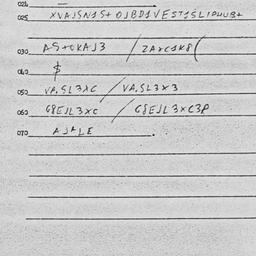 024
025 XVAJSNJS+ OJBDJVESTJSLIPHUB+
030 AS+OKAJ3 / ZAXCJK8(
040 $
050 VA.SL3XC / VA.SL3X3
060 G8EJL3XC / G8EJL3XC3P
070 AJALE .